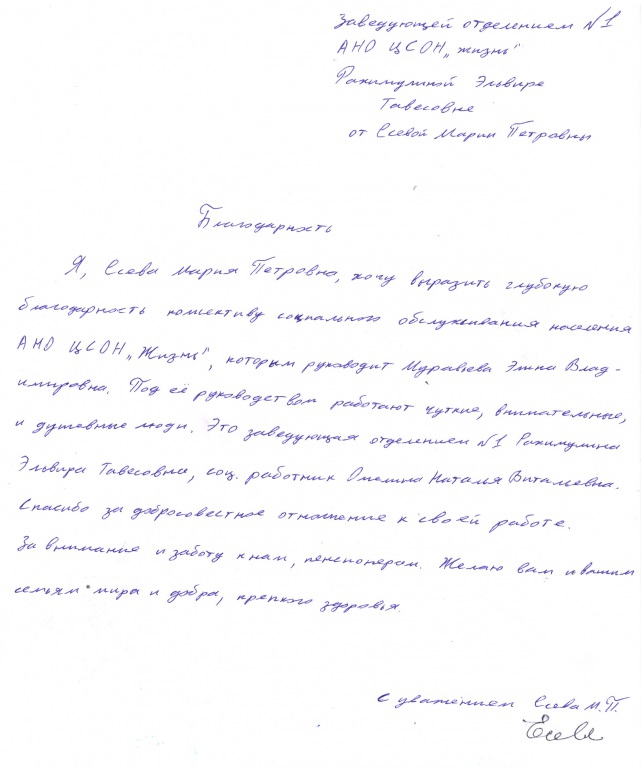 Заведующей отделением №1
АНО ЦСОН „Жизнь"
Рахимулиной Эльвире
Тавесовне
от Есевой Марии Петровны
Благодарность
Я, Есева Мария Петровна, хочу выразить глубокую
благодарность коллективу социального обслуживания населения
АНО ЦСОН „Жизнь", которым руководит Муравьева Элина Влад-
имировна. Под её руководством работают чуткие, внимательные,
и душевные люди. Это заведующая отделением №1 Рахимулина
Эльвира Тавесовна, соц. работник Омелина Наталья Витальевна.
Спасибо за добросовестное отношение к своей работе.
За внимание и заботу к нам, пенсионерам. Желаю вам и вашим
семьям мира и добра, крепкого здоровья.
С уважением Есева М.П.